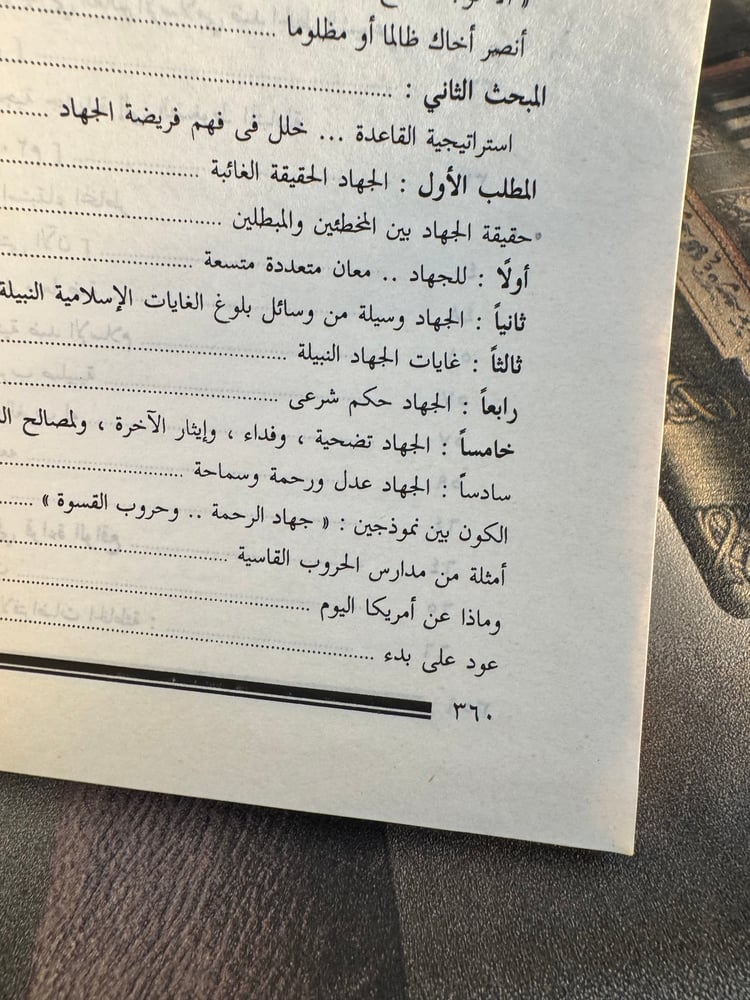 أنصر أخاك ظالما أو مظلوما ........................
المبحث الثاني : ........................
استراتيجية القاعدة ... خلل فى فهم فريضة الجهاد ........
المطلب الأول : الجهاد الحقيقة الغائبة ........................
حقيقة الجهاد بين المخطئين والمبطلين ........................
أولًا : للجهاد .. معان متعددة متسعة ........................
ثانياً : الجهاد وسيلة من وسائل بلوغ الغايات الإسلامية النبيلة
ثالثاً : غايات الجهاد النبيلة ........................
رابعاً : الجهاد حكم شرعى ........................
خامساً : الجهاد تضحية ، وفداء ، وإيثار الآخرة ، ولمصالح
سادساً : الجهاد عدل ورحمة وسماحة ........................
الكون بين نموذجين : « جهاد الرحمة .. وحروب القسوة » ......
أمثلة من مدارس الحروب القاسية ........................
وماذا عن أمريكا اليوم ........................
عود على بدء ........................
٣٦٠